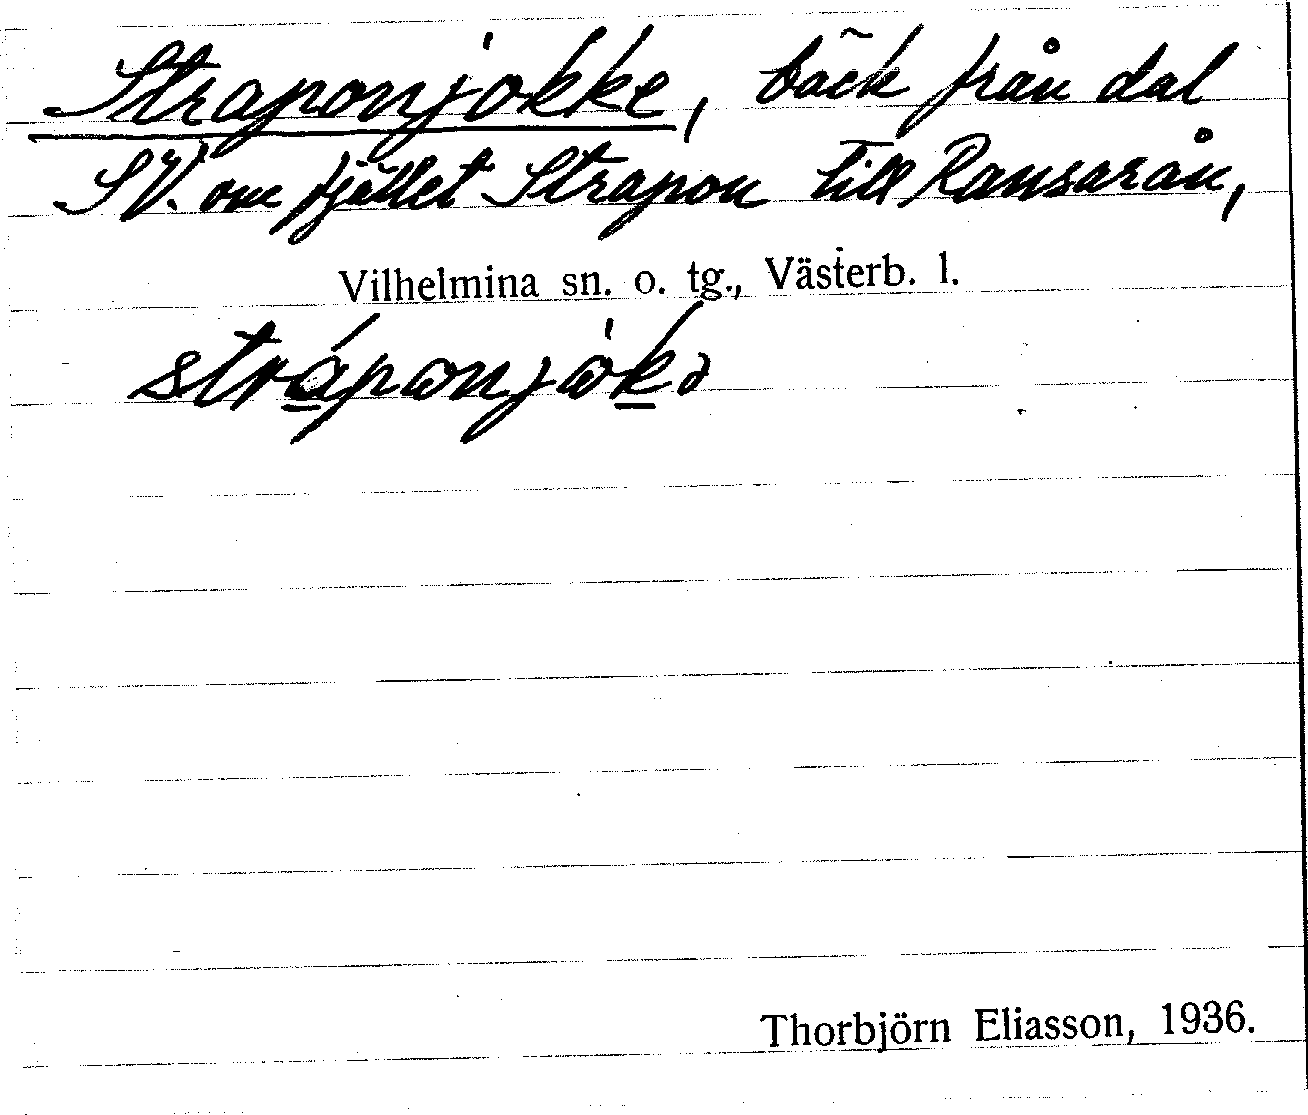 Straponjokke, bäck från dal
SV. om fjället Strapon till Ransarån,
Vilhelmina sn. o. tg., Västerb. l.
strápɷnjɷ̀kə
Thorbjörn Eliasson, 1936.